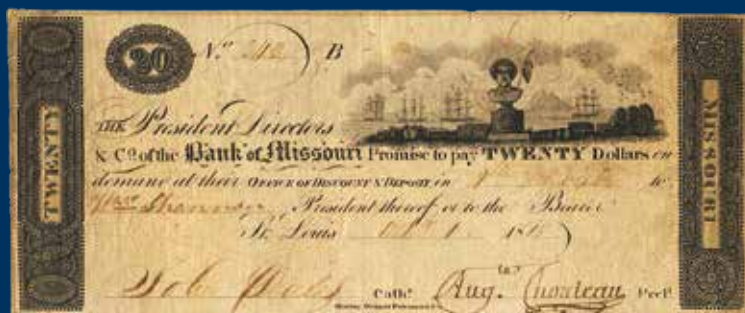 20 No. B
TWENTY
THE President Directors
& Co. of the Bank of Missouri Promise to pay TWENTY Dollars on
demand at their OFFICE OF DISCOUNT & DEPOSIT in to
President thereof or to the Bearer
St. Louis 18
Cashr. Aug. Chouteau Presdt.
MISSOURI